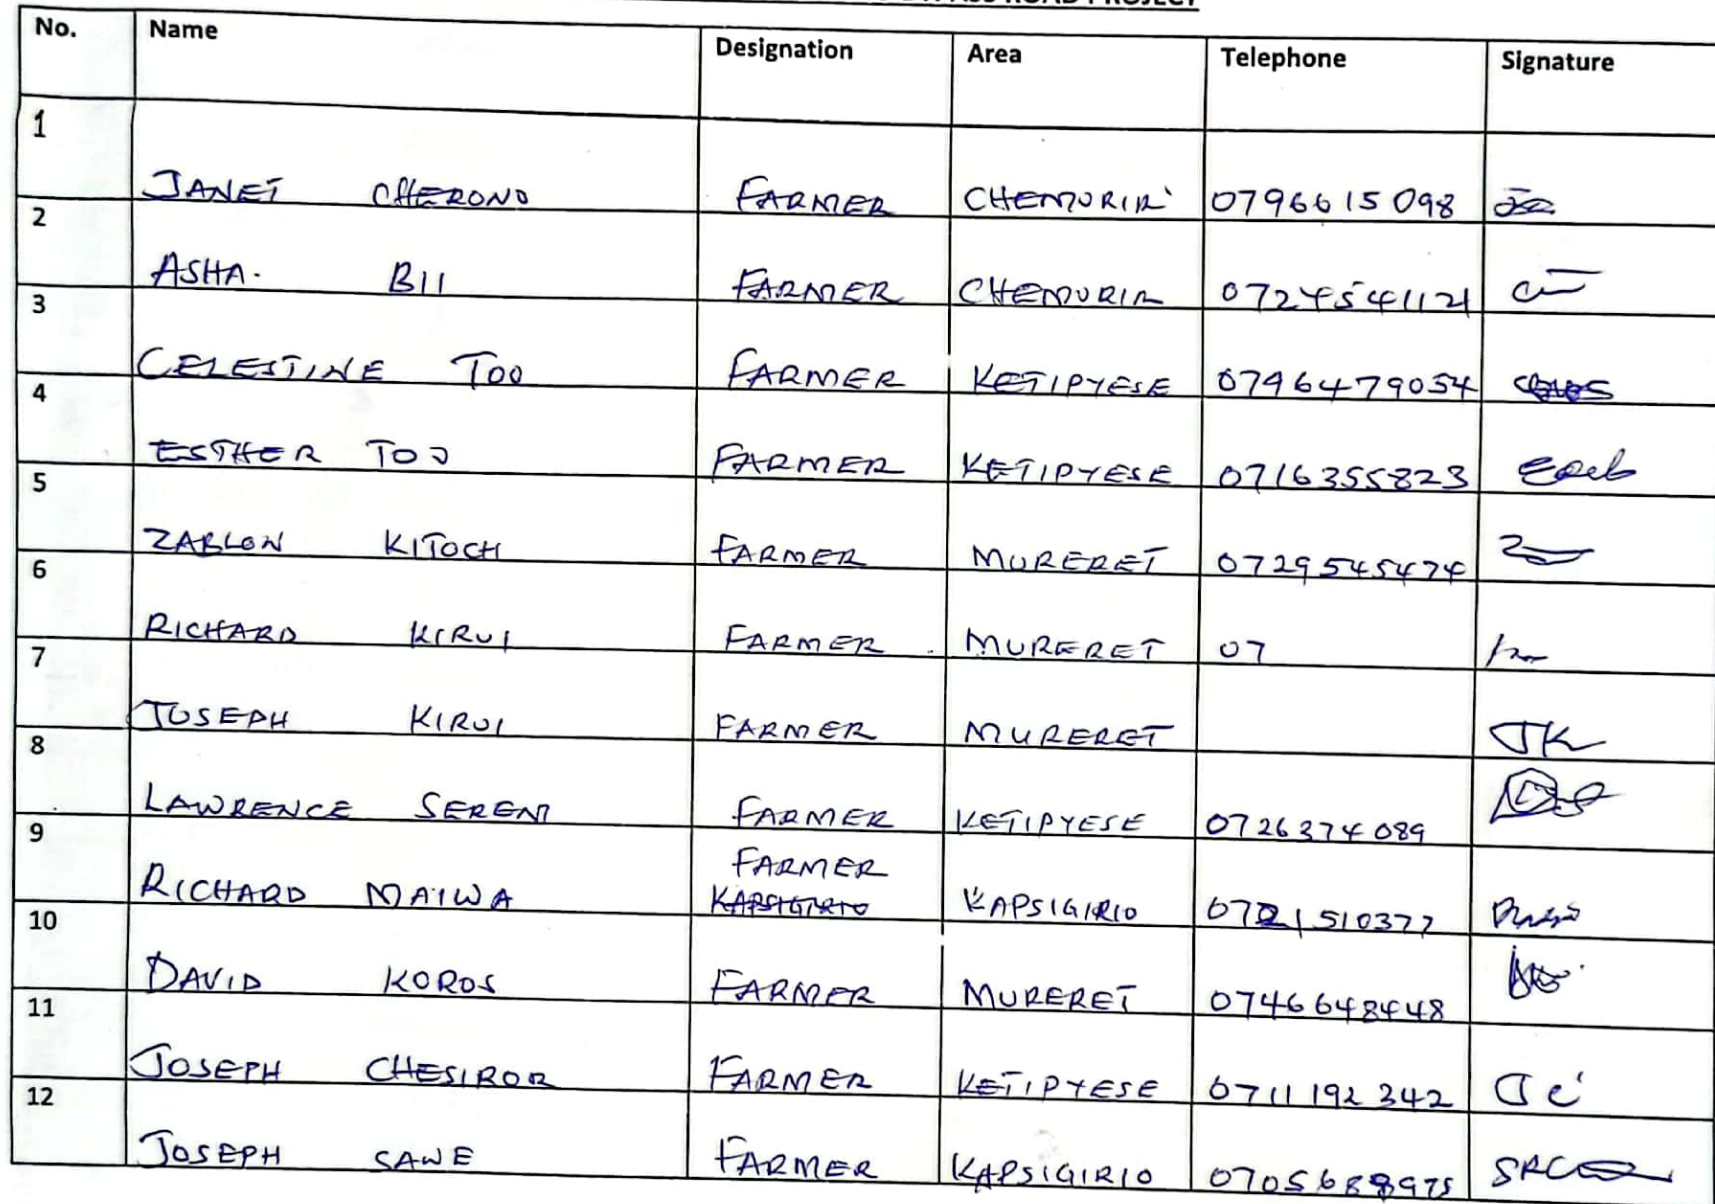 PASS ROAD PROJECT
No. Name Designation Area Telephone Signature
1 JANET CHERONO FARMER CHEMURIR 0796615098
2 ASHA. BII FARMER CHEMURIR
3 CELESTINE TOO FARMER KETIPYESE 0796479054
4 ESTHER TOO FARMER KETIPYESE 0716355823
5 ZABLON KITOCH FARMER MURERET 0729545474
6 RICHARD KIRUI FARMER MURERET 07
7 JOSEPH KIRUI FARMER MURERET JK
8 LAWRENCE SEREM FARMER KETIPYESE 0726374089
FARMER
9 RICHARD MAIWA KAPSIGIRIO KAPSIGIRIO 0721510377
10 DAVID KOROS FARMER MURERET 0746648448
11 JOSEPH CHESIROR FARMER KETIPYESE 0711192342 JC
12 JOSEPH SAWE FARMER KAPSIGIRIO